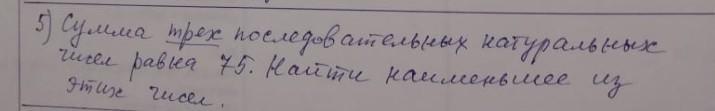 5) Сумма трех последовательных натуральных
чисел равна 75. Найти наименьшее из
этих чисел.